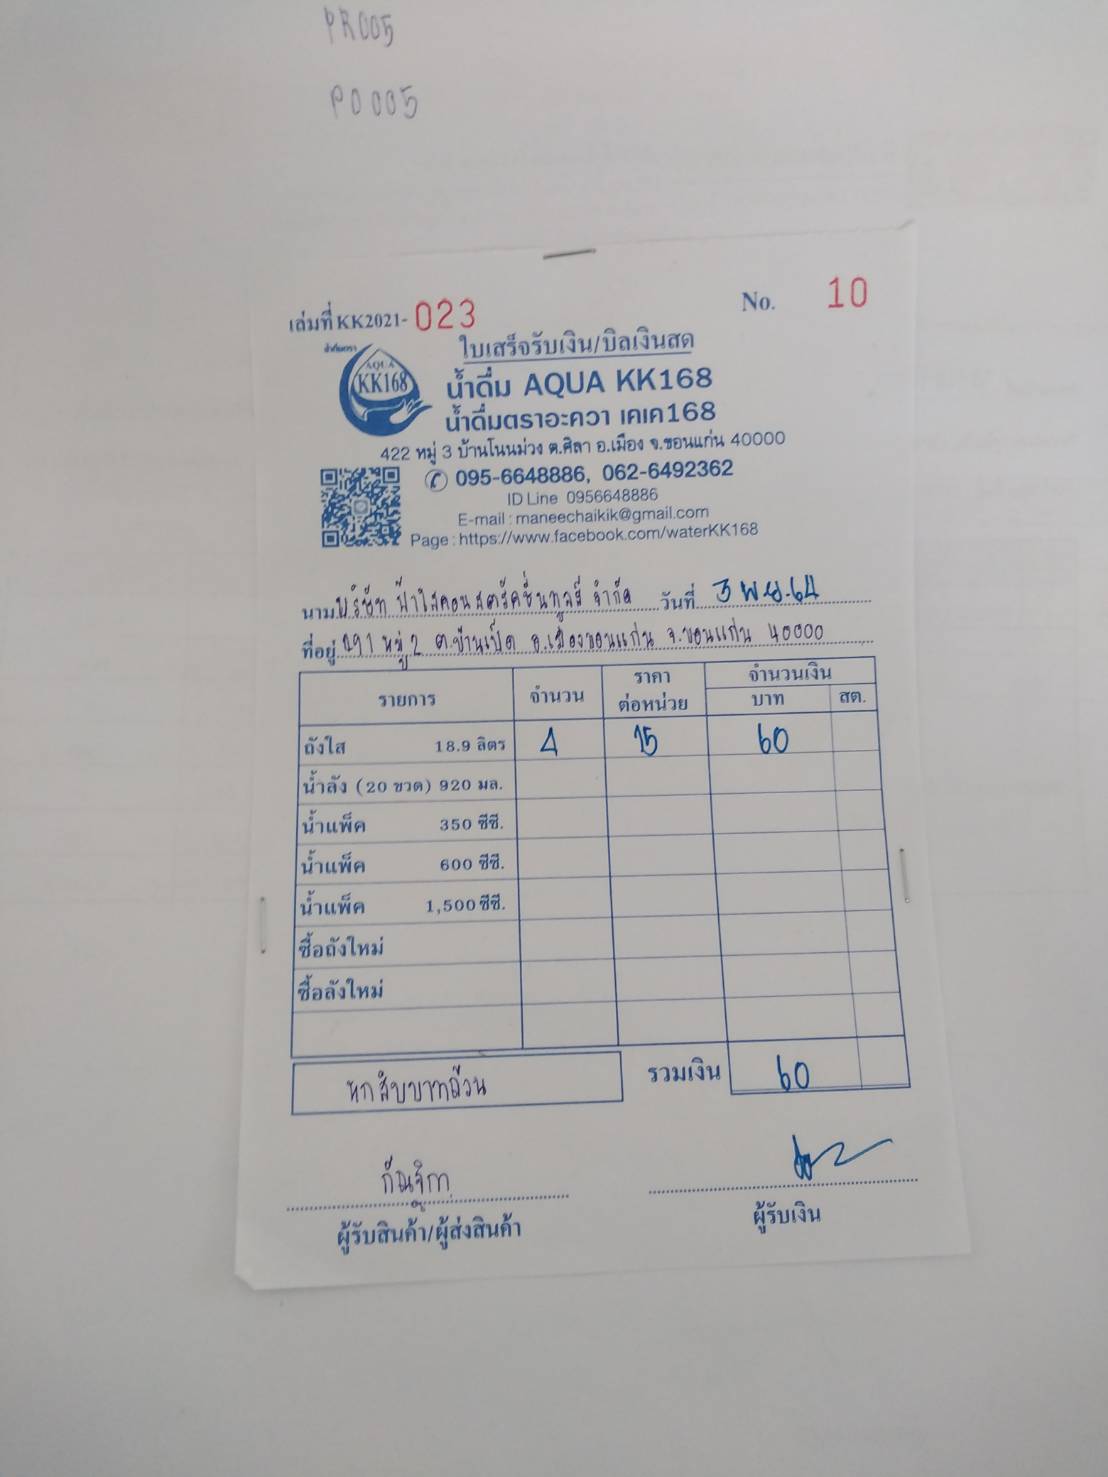 PR005
PO005
เล่มที่ KK2021- 023 No. 10
ใบเสร็จรับเงิน/บิลเงินสด
น้ำดื่มตรา
AQUA
KK168
น้ำดื่ม AQUA KK168
น้ำดื่มตราอะควา เคเค168
422 หมู่ 3 บ้านโนนม่วง ต.ศิลา อ.เมือง จ.ขอนแก่น 40000
095-6648886, 062-6492362
ID Line 0956648886
E-mail : maneechaikik@gmail.com
Page : https://www.facebook.com/waterKK168
นาม บริษัท ฟ้าใสคอนสตรัคชั่นทูลส์ จำกัด วันที่ 3 พ.ย. 64
ที่อยู่ 291 หมู่ 2 ต.บ้านเป็ด อ.เมืองขอนแก่น จ.ขอนแก่น 40000
รายการ จำนวน ราคา ต่อหน่วย จำนวนเงิน
บาท สต.
ถังใส 18.9 ลิตร 4 15 60
น้ำลัง (20 ขวด) 920 มล.
น้ำแพ็ค 350 ซีซี.
น้ำแพ็ค 600 ซีซี.
น้ำแพ็ค 1,500 ซีซี.
ซื้อถังใหม่
ซื้อลังใหม่
หกสิบบาทถ้วน รวมเงิน 60
กัณฐิกา
ผู้รับสินค้า/ผู้ส่งสินค้า ผู้รับเงิน